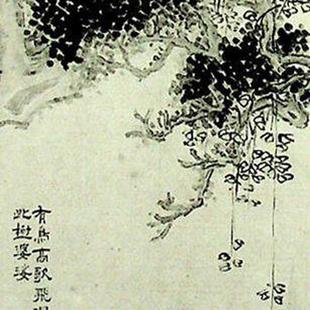 有鳥高歌飛
此樹婆娑